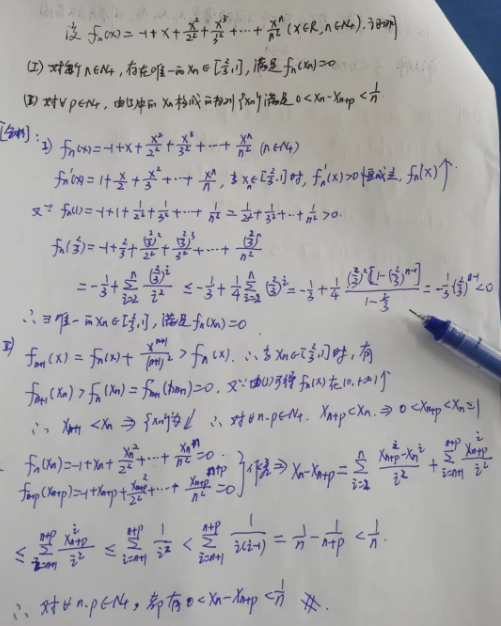 设 fn(x)=-1+x+x²/2²+x³/3²+…+xⁿ/n² (x∈R, n∈N+). 证明
(I) 对每个n∈N+, 存在唯一的xn∈[2/3,1], 满足fn(xn)=0
(II) 对∀p∈N+, 由(I)中的xn构成的数列{xn}满足0<xn-xn+p<1/n.
[全解]: I) fn(x)=-1+x+x²/2²+x³/3²+…+xⁿ/n² (n∈N+)
fn'(x)=1+x/2+x²/3+…+xⁿ/n, 当x∈[2/3,1]时, fn'(x)>0恒成立, fn'(x)↑
又∵ fn(1)=-1+1+1/2²+1/3²+…+1/n²=1/2²+1/3²+…+1/n²>0.
fn(2/3)=-1+2/3+(2/3)²/2²+(2/3)³/3²+…+(2/3)ⁿ/n²
=-1/3+∑_{i=2}^{n}(2/3)^i/i² ≤-1/3+1/4∑_{i=2}^{n}(2/3)^i=-1/3+1/4·(2/3)²[1-(2/3)^{n-1}]/(1-2/3)=-1/3·(2/3)^{n-1}<0
∴ ∃唯一的xn∈[2/3,1], 满足fn(xn)=0
II) fn+1(x)=fn(x)+x^{n+1}/(n+1)²>fn(x). ∴当xn∈[2/3,1]时, 有
fn+1(xn)>fn(xn)=fn+1(xn+1)=0. 又∵由(I)可得fn(x)在(0,+∞)↑
∴ xn+1<xn ⇒{xn}为↓ ∴ 对∀n·p∈N+. xn+p<xn. ⇒ 0<xn+p<xn≤1
fn(xn)=-1+xn+xn²/2²+…+xnⁿ/n²=0.
fn+p(xn+p)=-1+xn+p+xn+p²/2²+…+xn+p^{n+p}/n²=0 } 作差⇒ xn-xn+p=∑_{i=2}^{n}(xn+p^i-xn^i)/i²+∑_{i=n+1}^{n+p}xn+p^i/i²
≤∑_{i=n+1}^{n+p}xn+p^i/i² ≤∑_{i=n+1}^{n+p}1/i² <∑_{i=n+1}^{n+p}1/(i(i-1))=1/n-1/(n+p)<1/n.
∴ 对∀n·p∈N+, 都有0<xn-xn+p<1/n #.